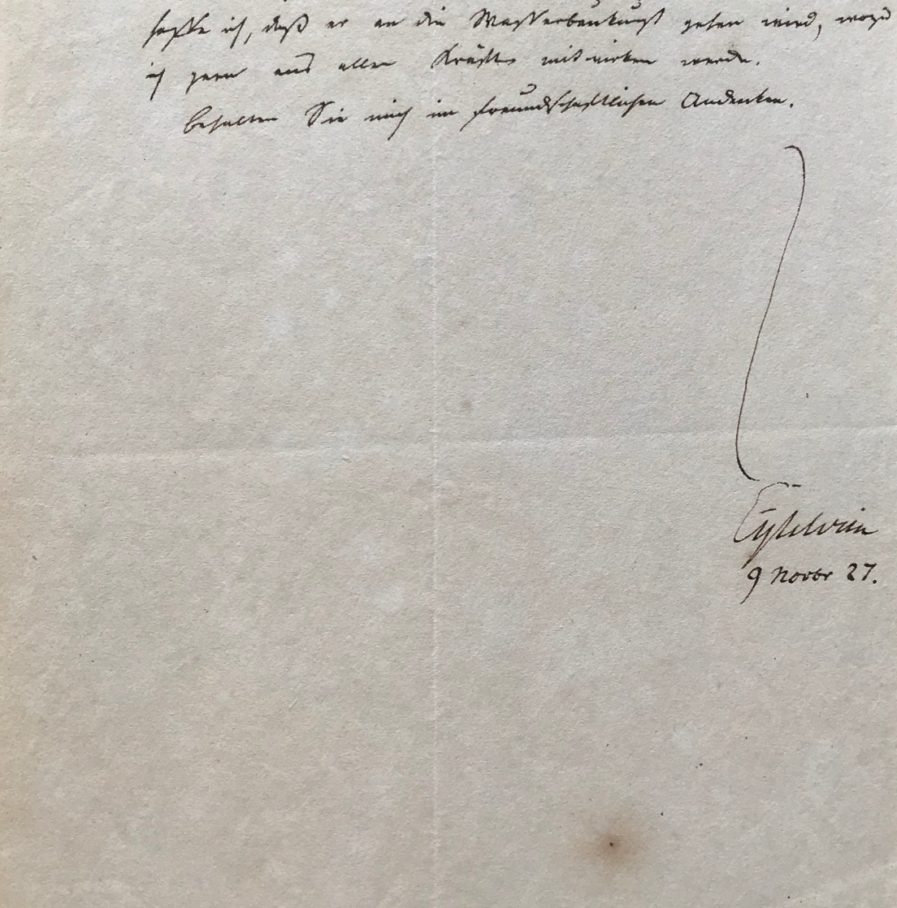 hoffe ich, daß er an die Wasserbaukunst gehen wird, wozu
ich gern aus allen Kräften mitwirken werde.
behalten Sie mich im freundschaftlichen Andenken.
Eytelwein
9 Novbr 27.